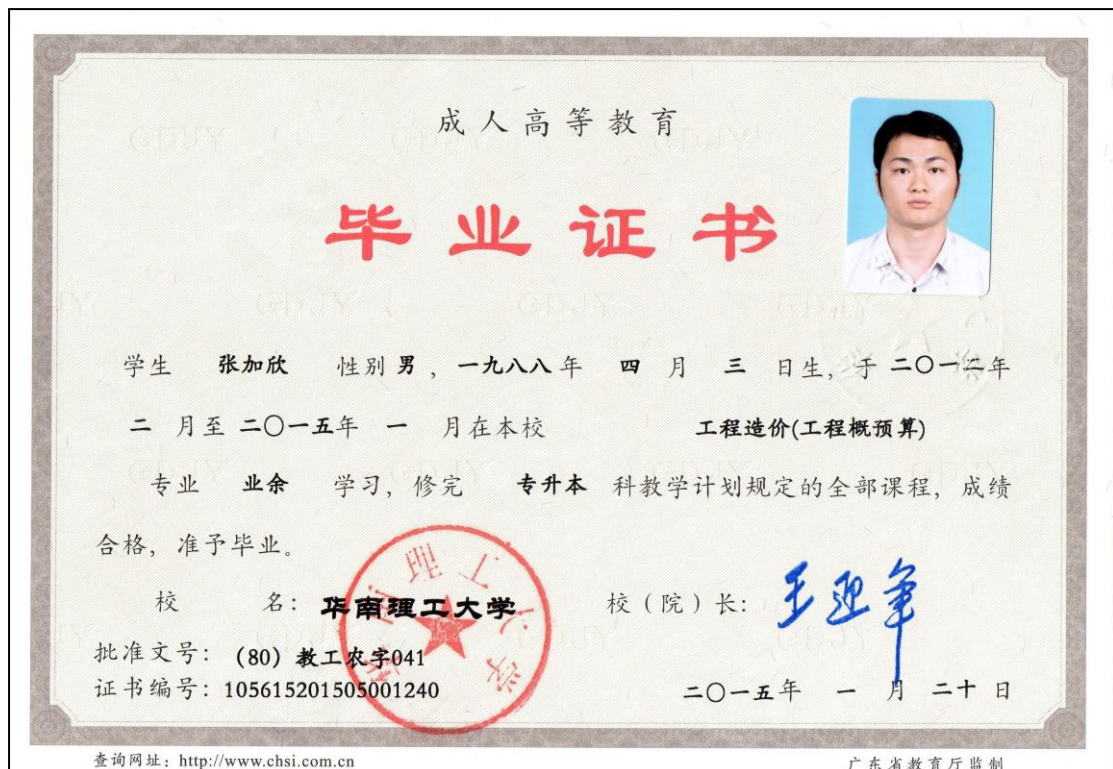 成人高等教育
毕业证书
学生 张加欣 性别 男 , 一九八八年 四 月 三 日生, 于 二〇一二年
二 月至 二〇一五年 一 月在本校 工程造价(工程概预算)
专业 业余 学习, 修完 专升本 科教学计划规定的全部课程, 成绩
合格, 准予毕业。
校 名: 华南理工大学 校(院)长: 王迎军
华南理工大学
批准文号: (80) 教工农字041
证书编号: 105615201505001240 二〇一五年 一 月 二十 日
查询网址: http://www.chsi.com.cn 广东省教育厅监制